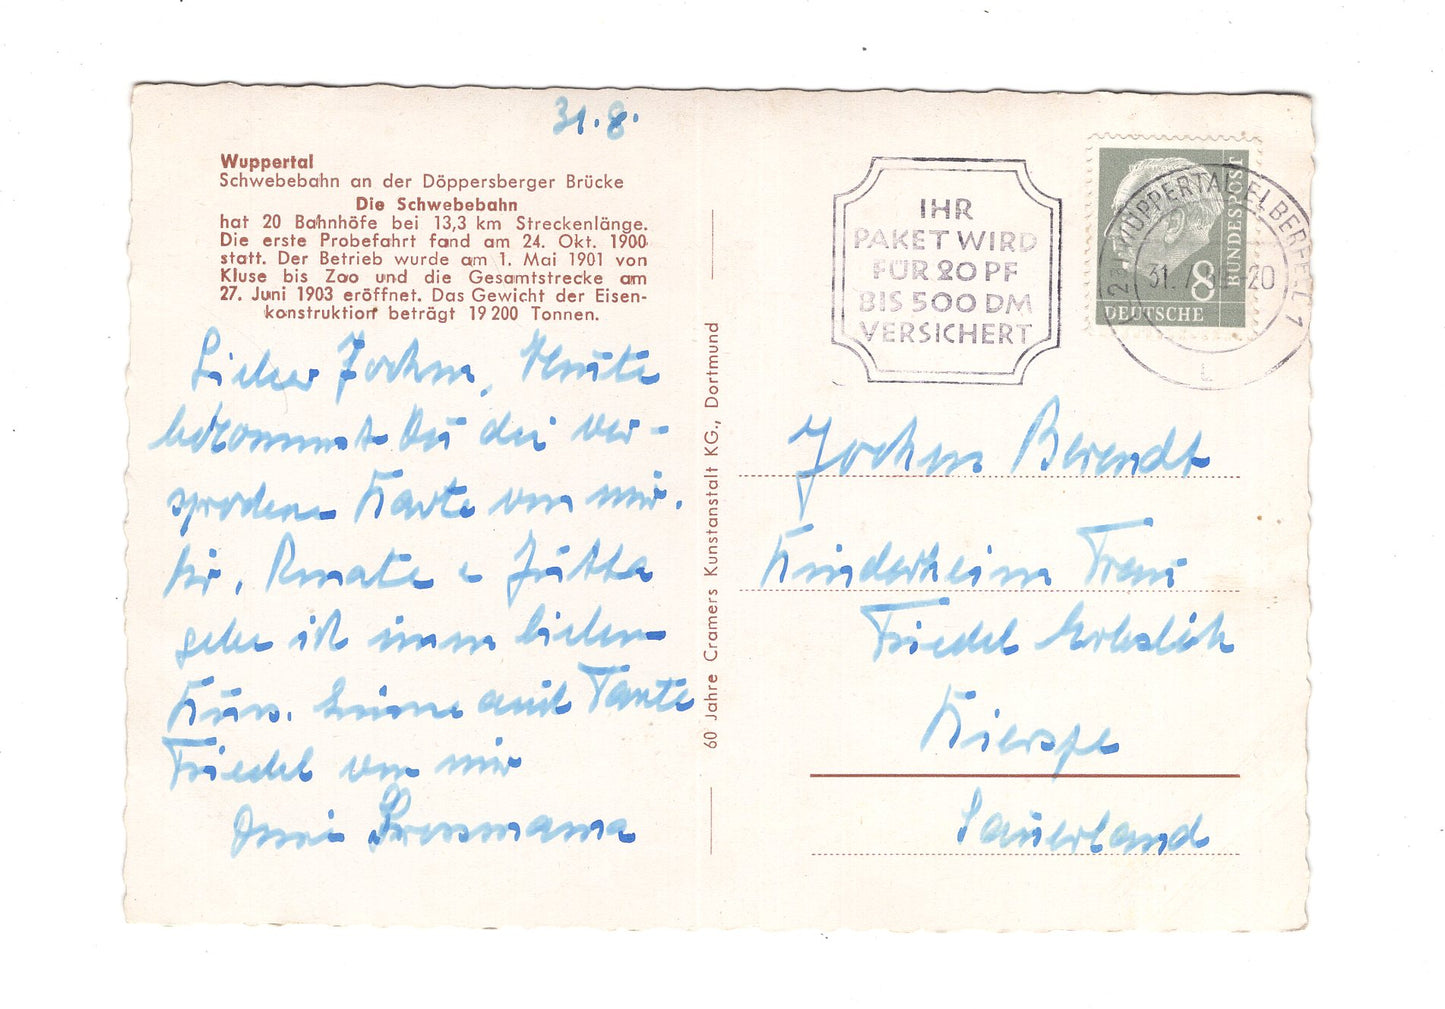 31.8.
Wuppertal
Schwebebahn an der Döppersberger Brücke
Die Schwebebahn
hat 20 Bahnhöfe bei 13,3 km Streckenlänge.
Die erste Probefahrt fand am 24. Okt. 1900
statt. Der Betrieb wurde am 1. Mai 1901 von
Kluse bis Zoo und die Gesamtstrecke am
27. Juni 1903 eröffnet. Das Gewicht der Eisen-
konstruktion beträgt 19 200 Tonnen.
Lieber Jochen, Heute
bekommst Du die ver-
sprochene Karte von mir.
Dir, Renate e Jutta
gebe ich einen lieben
Kuss. Grüsse auch Tante
Friedel von mir
Grossmama
60 Jahre Cramers Kunstanstalt KG., Dortmund
IHR
PAKET WIRD
FÜR 20 PF
BIS 500 DM
VERSICHERT
WUPPERTAL-ELBERFELD 1
31. 7. -20
L
DEUTSCHE
BUNDESPOST
8
Jochen Berendt
Kinderheim Frau
Friedel
Kierspe
Sauerland